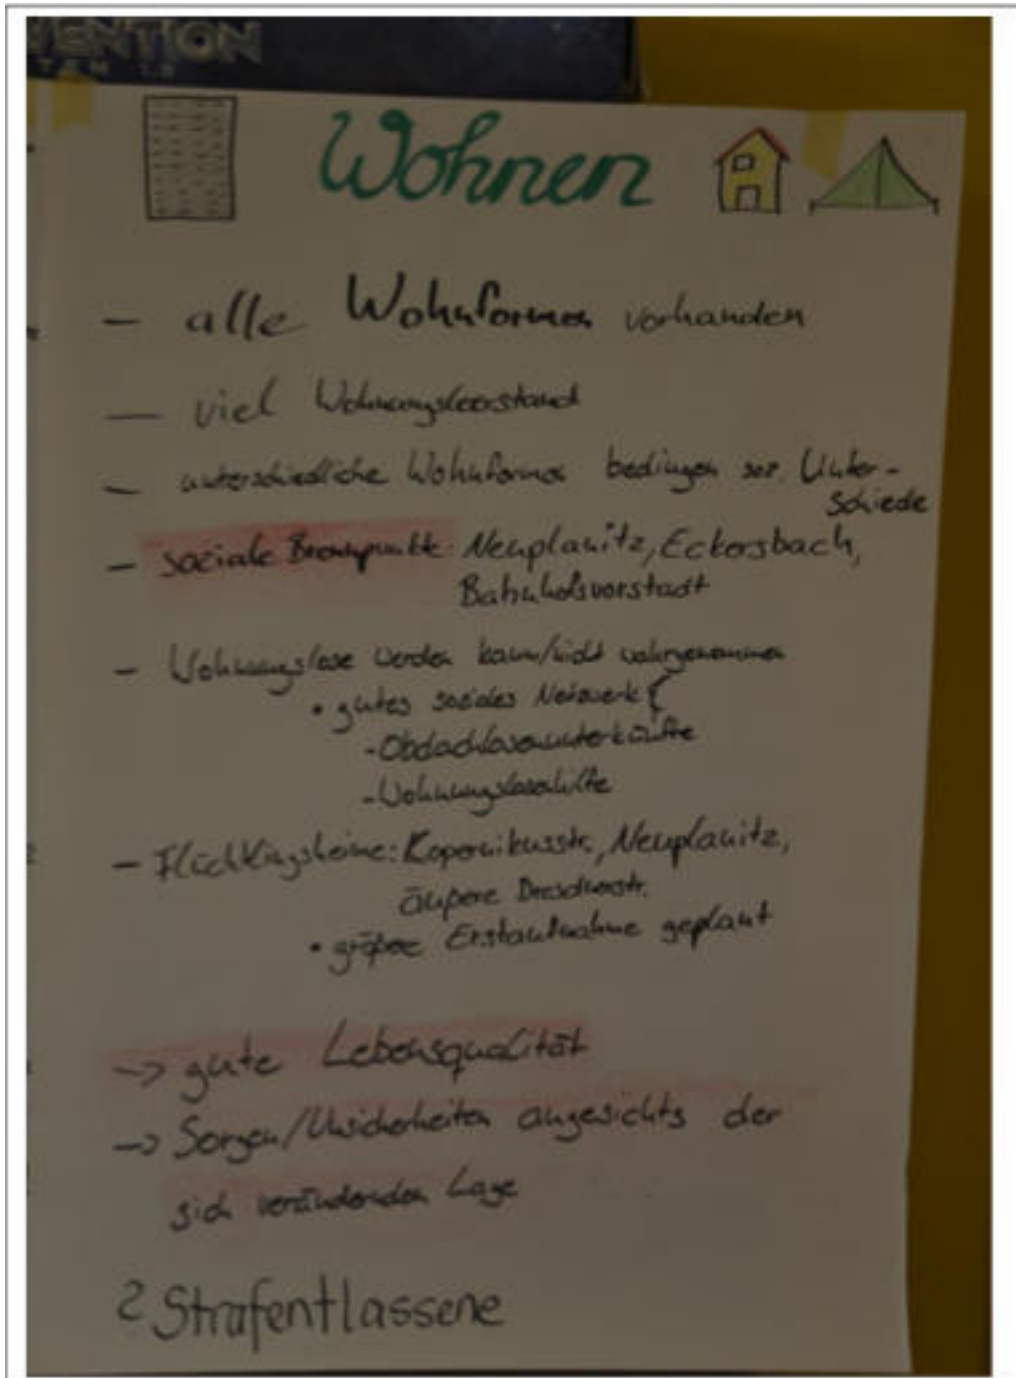 VENTION
TEM 1.2
Wohnen
- alle Wohnformen vorhanden
- viel Wohnungsleerstand
- unterschiedliche Wohnformen bedingen soz. Unter-
schiede
- soziale Brennpunkte: Neuplanitz, Eckersbach,
Bahnhofsvorstadt
- Wohnungslose werden kaum/nicht wahrgenommen
• gutes soziales Netzwerk {
- Obdachlosenunterkünfte
- Wohnungslosenhilfe
- Flüchtlingsheime: Kopernikusstr., Neuplanitz,
äußere Dresdnerstr.
• größere Erstaufnahme geplant
-> gute Lebensqualität
-> Sorgen/Unsicherheiten angesichts der
sich verändernden Lage
? Strafentlassene